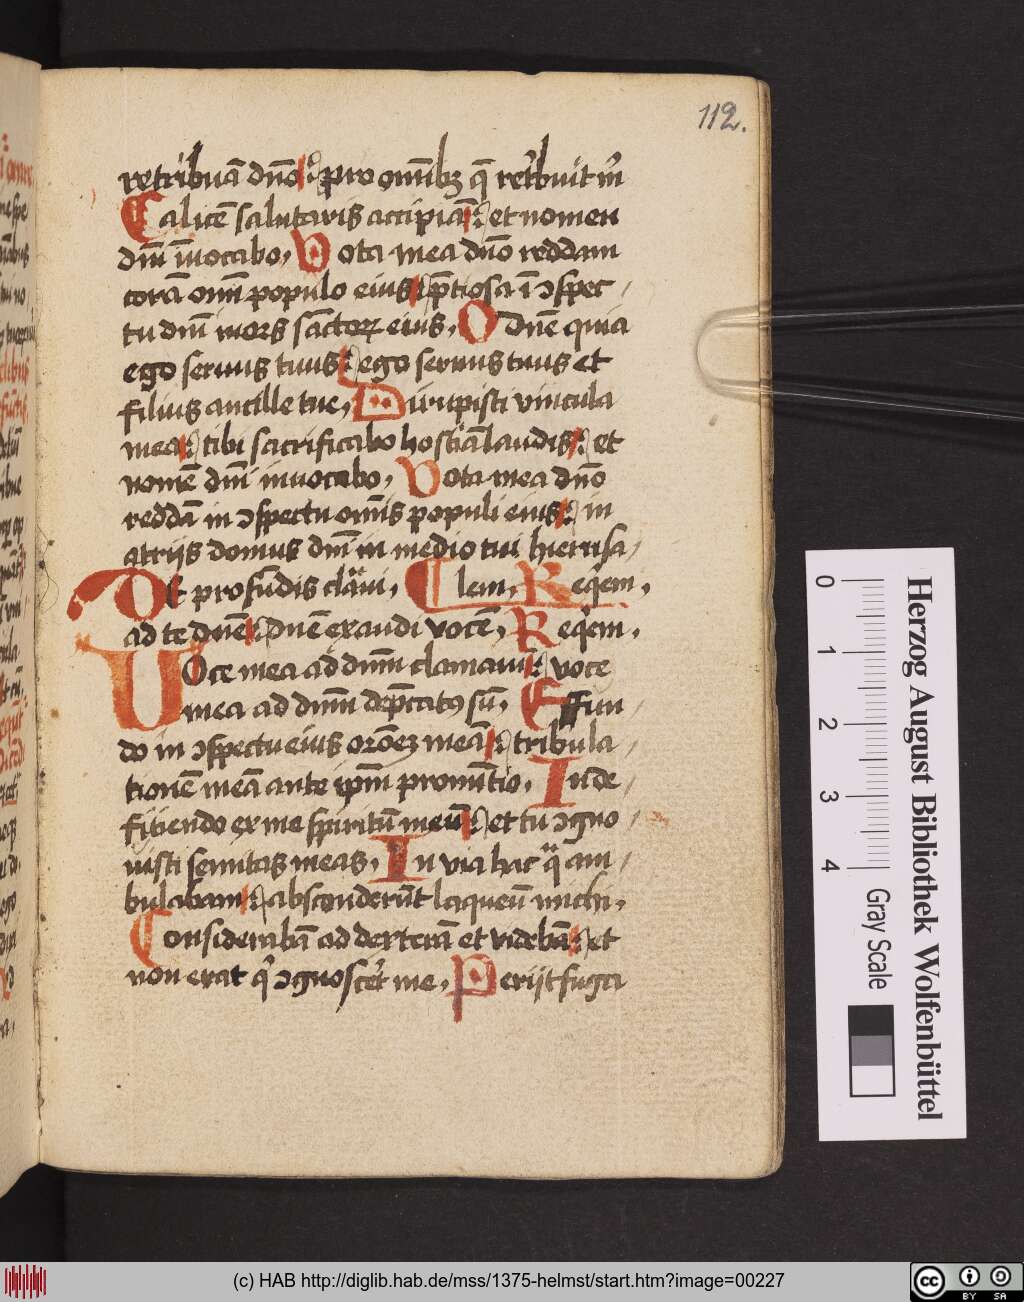 112.
retribuā dn̄o : pro om̄ibꝫ q̄ ret'buit m̄
Calicē salutaris accipiā : et nomen
dn̄i īuocabo . Vota mea dn̄o reddam
corā om̄i populo eius : p̄tiosa ī ꝯspec /
tu dn̄i mors sāctoꝝ eius . O dn̄e quia
ego seruus tuus : ego seruus tuus et
filius ancille tue . Dirupisti vincula
mea : tibi sacrificabo hostiā laudis : et
nomē dn̄i inuocabo . Vota mea dn̄o
reddā in ꝯspectu om̄is populi eius : in
atrijs domus dn̄i in medio tui hierusa /
De profūdis clāui . Clem . Reqem .
ad te dn̄e : dn̄e exaudi vocē . Reqem .
Voce mea ad dn̄m clamaui : voce
mea ad dn̄m dep̄catꝰ sū . Effun /
do in ꝯspectu eius orōeꝫ meā : tribula /
tionē meā ante ip̄m pronūtio . In de /
fitiendo ex me spiritū meū : et tu ꝯgno /
uisti semitas meas . In via hac qͣ am /
bulabam : absconderūt laqueū michi .
Considerabā ad dexterā et videbā : et
non erat q' ꝯgnoscet' me . Perijt fuga
Herzog August Bibliothek Wolfenbüttel
0 1 2 3 4
Gray Scale
(c) HAB http://diglib.hab.de/mss/1375-helmst/start.htm?image=00227
cc BY SA